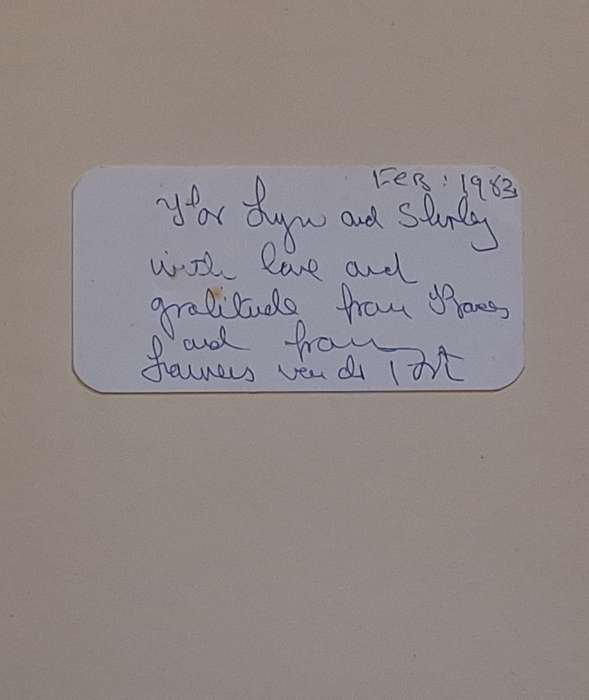 Feb: 1983
For Lyn and Shirley
with love and
gratitude from
and from
Frances